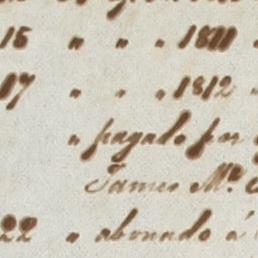 15 " " " 1811
17 " " " 1812 "
" pagado por
James Mc
22 " abonado á